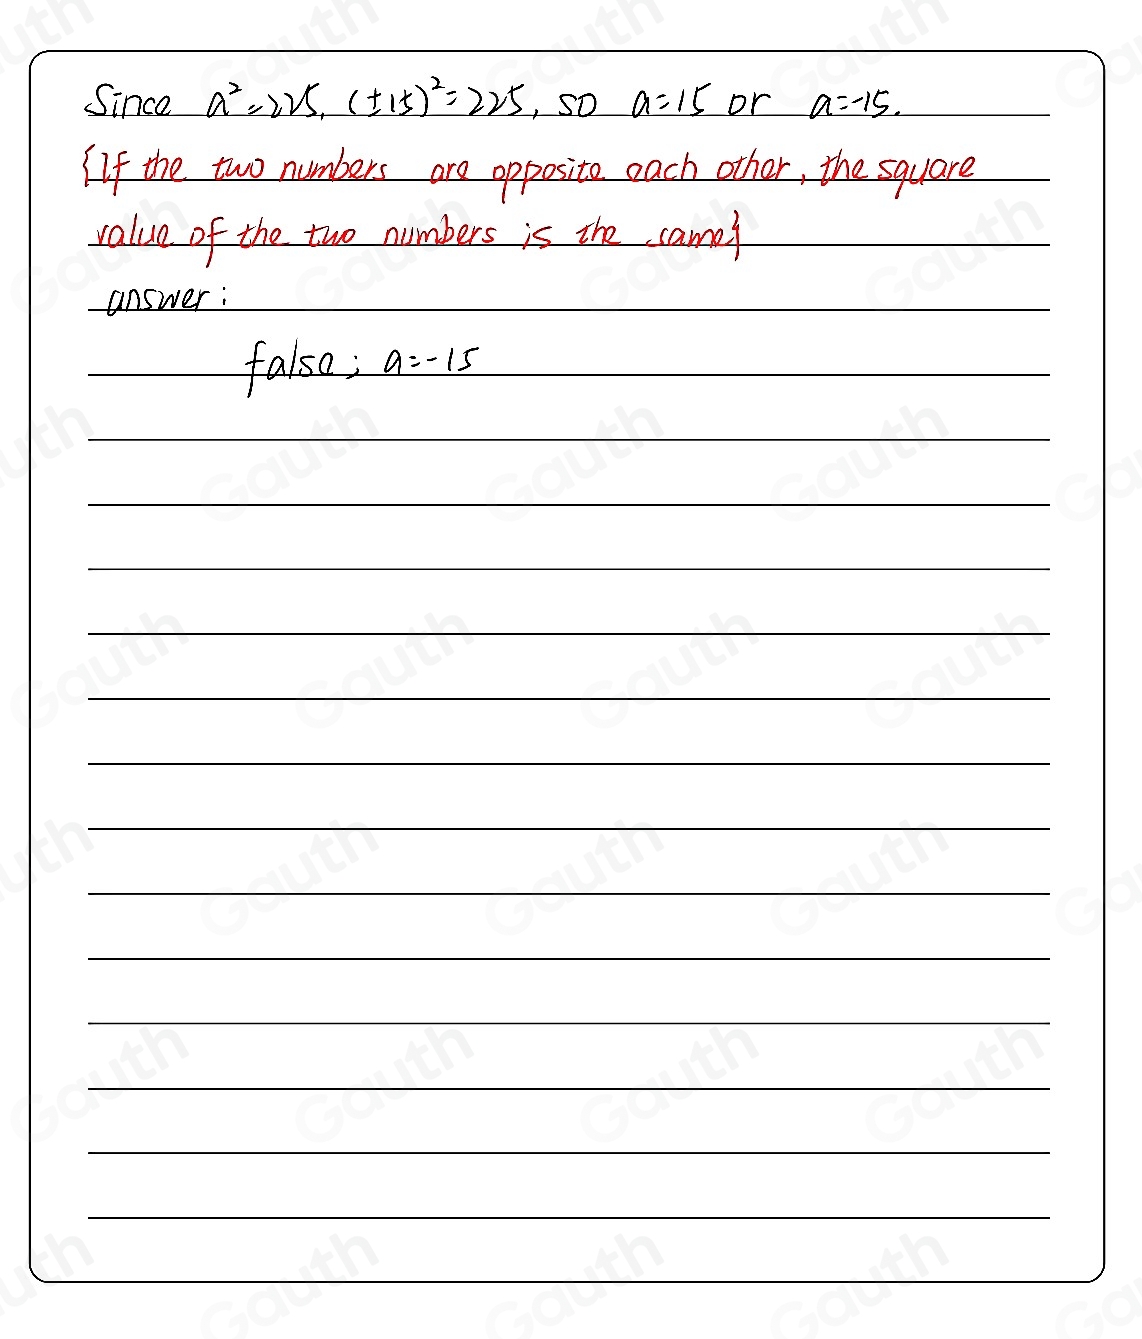 Since a²=225, (±15)²=225, so a=15 or a=-15.
{If the two numbers are opposite each other, the square
value of the two numbers is the same}
answer:
false; a=-15
Gauth